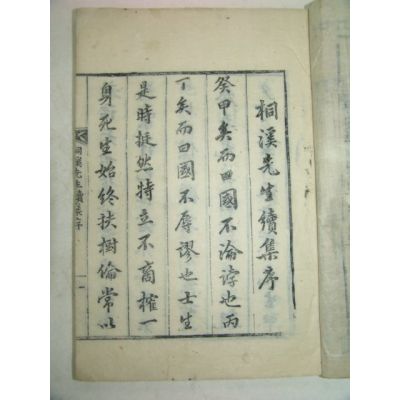 桐溪先生續集序
癸甲矣而曰國不淪謬也丙
丁矣而曰國不辱謬也士生
是時挺然特立不啻攉一
身死生始終扶樹倫常以
桐溪先生續集序 一